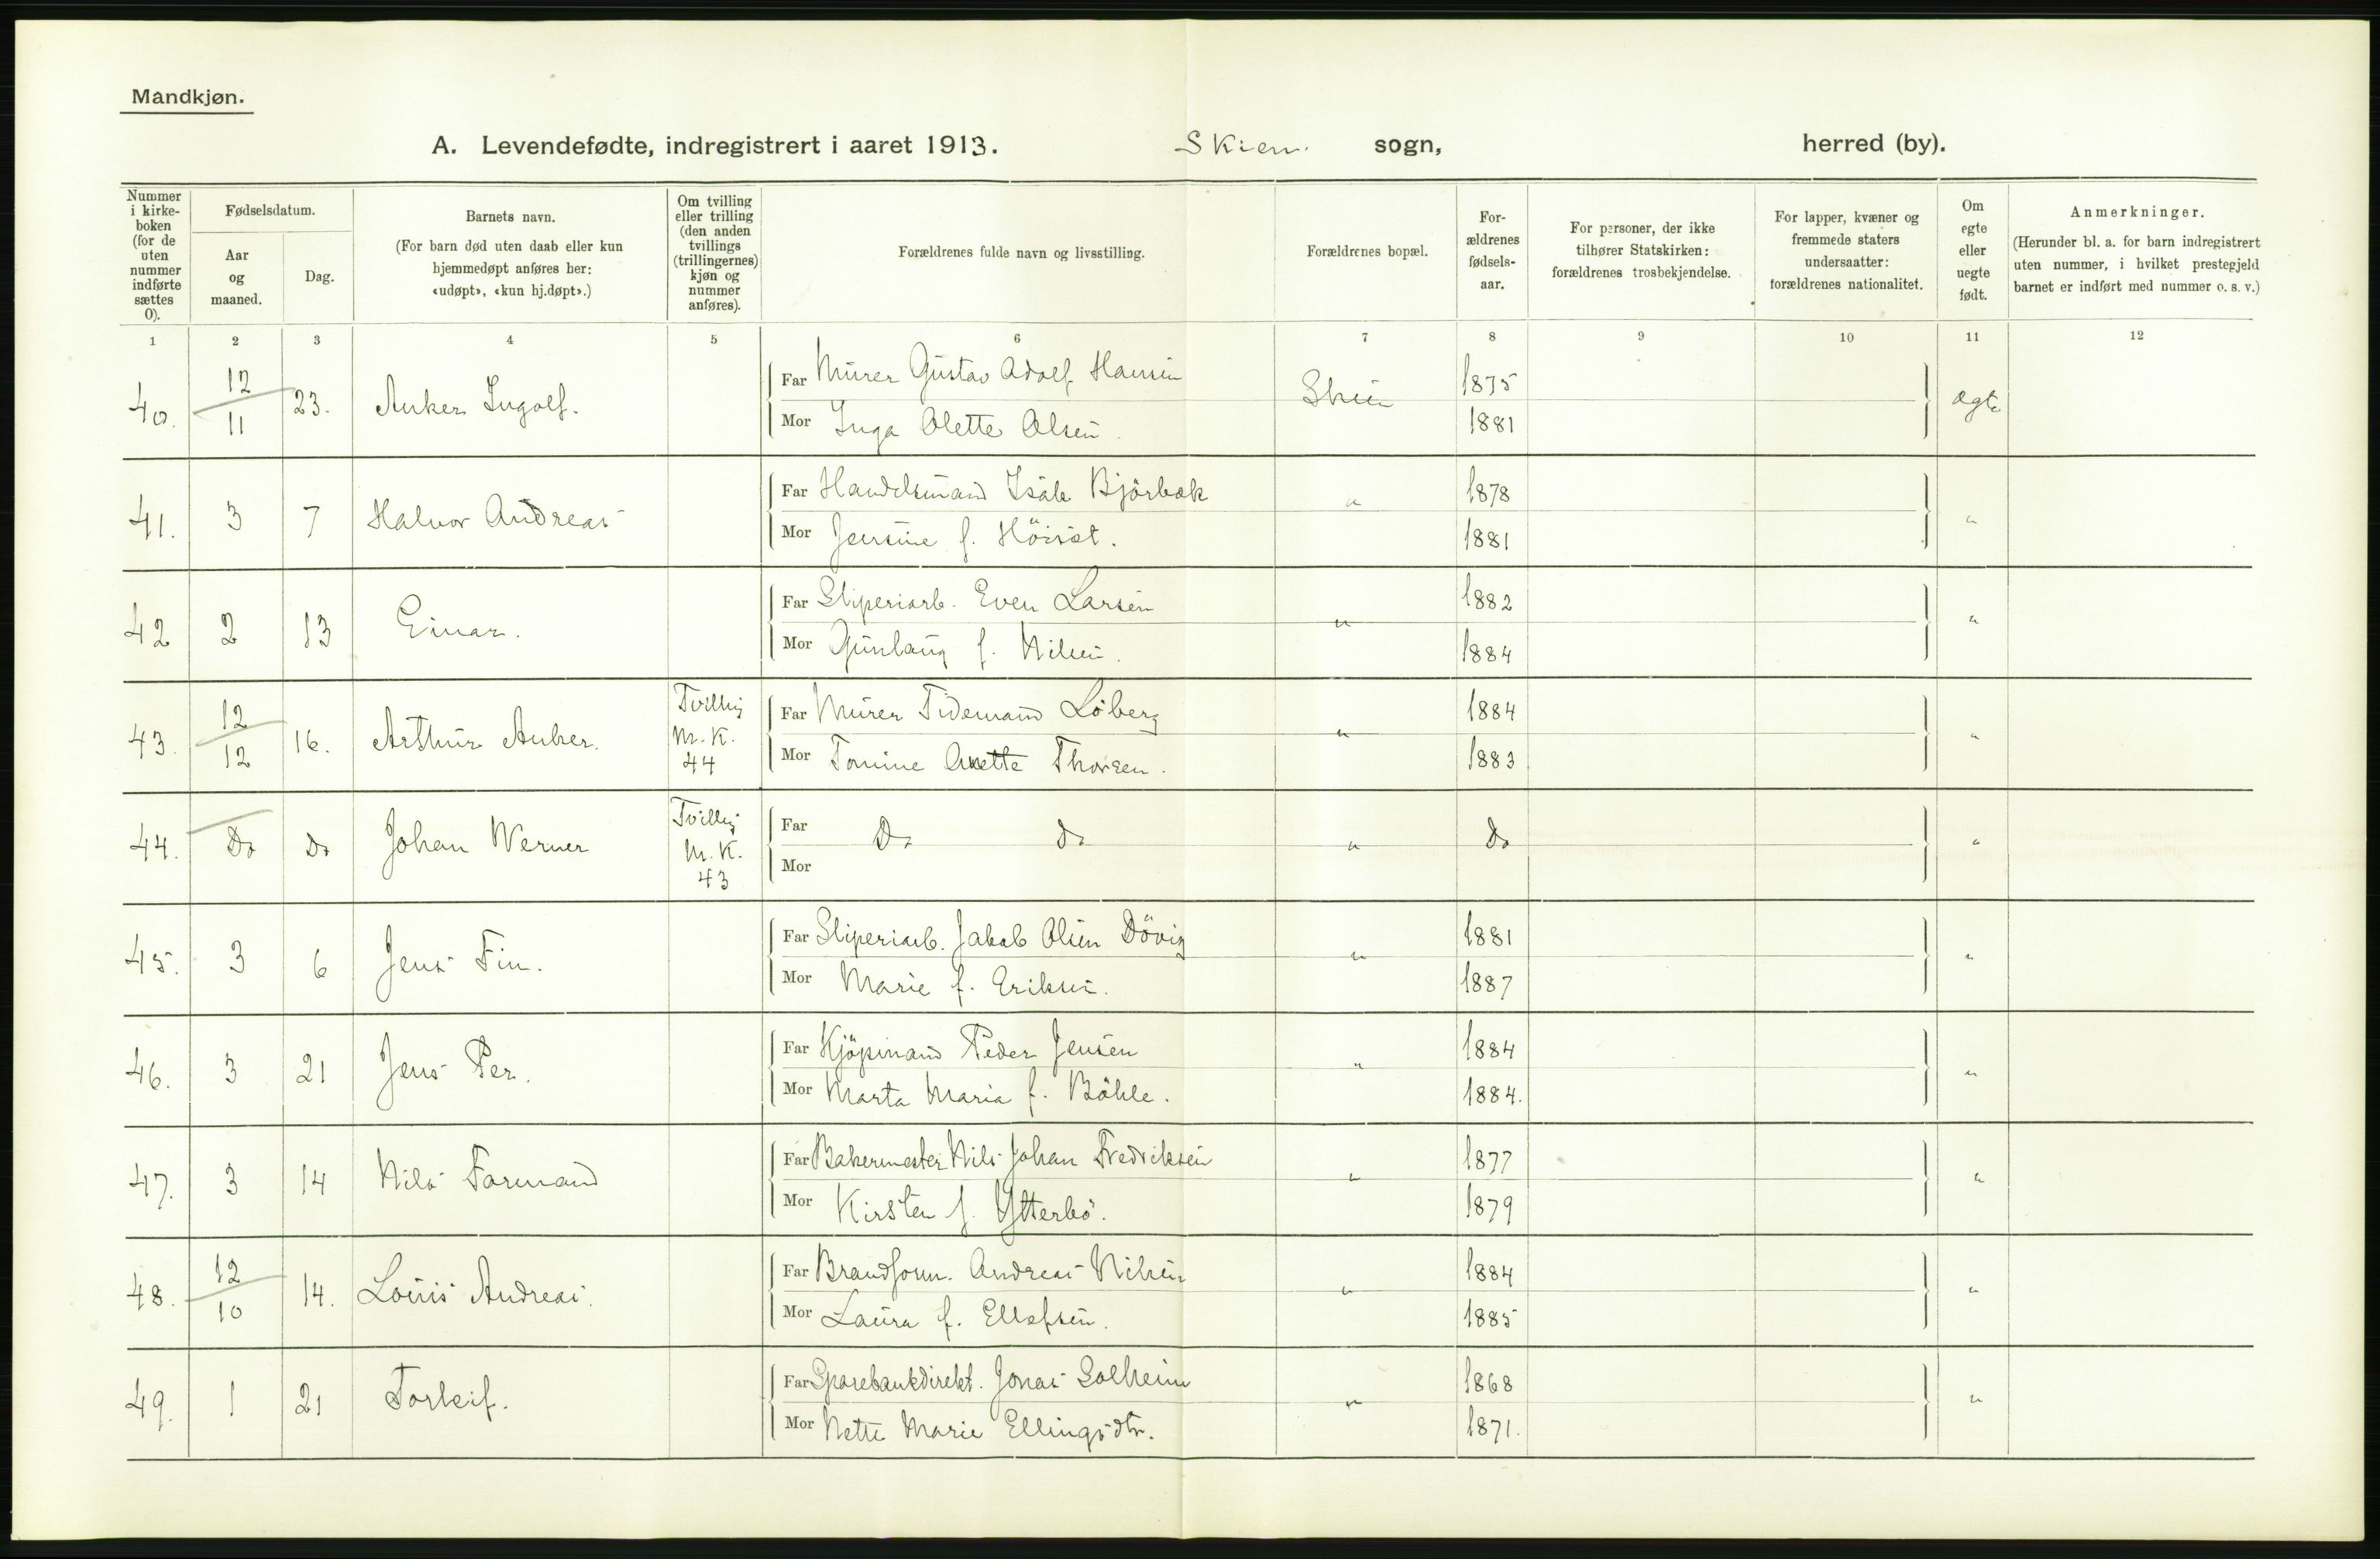 Mandkjøn.
A. Levendefødte, indregistrert i aaret 1913. Skien sogn, herred (by).
Nummer i kirke-boken (for de uten nummer indførte sættes 0).
Fødselsdatum.
Aar og maaned.
Dag.
Barnets navn.
(For barn død uten daab eller kun hjemmedøpt anføres her: «udøpt», «kun hj.døpt».)
Om tvilling eller trilling (den anden tvillings (trillingernes) kjøn og nummer anføres).
Forældrenes fulde navn og livsstilling.
Forældrenes bopæl.
For-ældrenes fødsels-aar.
For personer, der ikke tilhører Statskirken: forældrenes trosbekjendelse.
For lapper, kvæner og fremmede staters undersaatter: forældrenes nationalitet.
Om egte eller uegte født.
Anmerkninger.
(Herunder bl. a. for barn indregistrert uten nummer, i hvilket prestegjeld barnet er indført med nummer o. s. v.)
1 2 3 4 5 6 7 8 9 10 11 12
40. 12/11 23. Anker Ingolf. Far Murer Gustav Adolf Hansen Skien 1875 ægte
Mor Inga Olette Olsen. 1881
41. 3 7 Halvor Andreas Far Handelsmand Isak Bjørbæk " 1878 "
Mor Jensine f. Höisæt. 1881
42 2 13 Einar. Far Sliperiarb. Even Larsen " 1882 "
Mor Gunlaug f. Nilsen. 1884
43. 12/12 16. Arthur Anker. Tvilling M. K. 44 Far Murer Tidemand Löberg " 1884 "
Mor Tomine Anette Thorsen. 1883
44. Do Do Johan Werner Tvilling M. K. 43 Far Do do " Do "
Mor
45. 3 6 Jens Fin. Far Sliperiarb. Jakob Olsen Dövig " 1881 "
Mor Marie f. Eriksen. 1887
46. 3 21 Jens Per. Far Kjöpmand Peder Jensen " 1884 "
Mor Marta Maria f. Böhle. 1884.
47. 3 14 Nils Farmand Far Bakermester Nils Johan Fredriksen " 1877 "
Mor Kirsten f. Ytterbö. 1879
48. 12/10 14. Louis Andreas. Far Brandform. Andreas Nilsen " 1884 "
Mor Laura f. Ellefsen. 1885
49. 1 21 Torleif. Far Sparebankdirekt. Jonas Solheim " 1868 "
Mor Nette Marie Ellingsdtr. 1871.